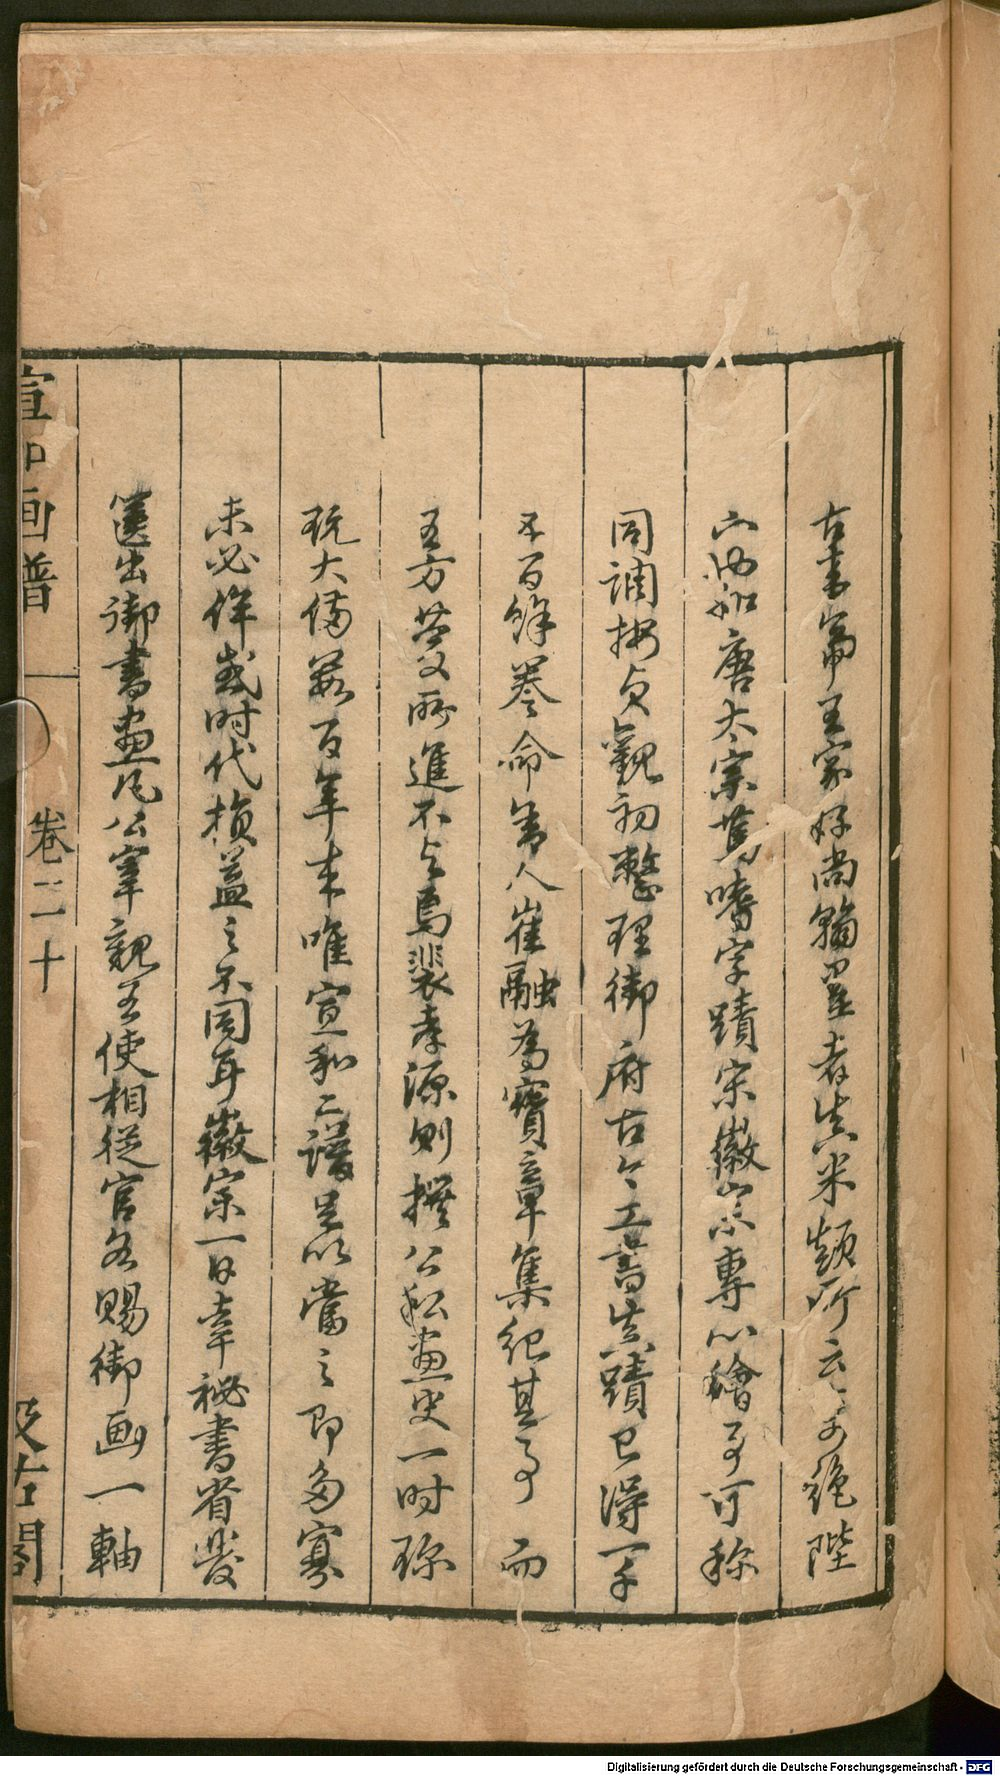 古來帝王家好尚翰墨者其米顛所云云絶陛
亦然如唐太宗篤嗜字蹟宋徽宗專心繪事可称
同調按貞觀初整理御府古今工書真蹟已得一千
五百餘卷命舍人崔融為寶章集紀其事而
五方藝文所進不與焉裴孝源則撰公私畫史一時称
玩大備若百年来唯宣和二譜足以當之即多寡
未必侔或時代損益之不同耳徽宗一日幸祕書省發
篋出御書畫凡公宰親王使相從官各賜御画一軸
宣和画譜
卷二十
汲古閣
Digitalisierung gefördert durch die Deutsche Forschungsgemeinschaft - DFG